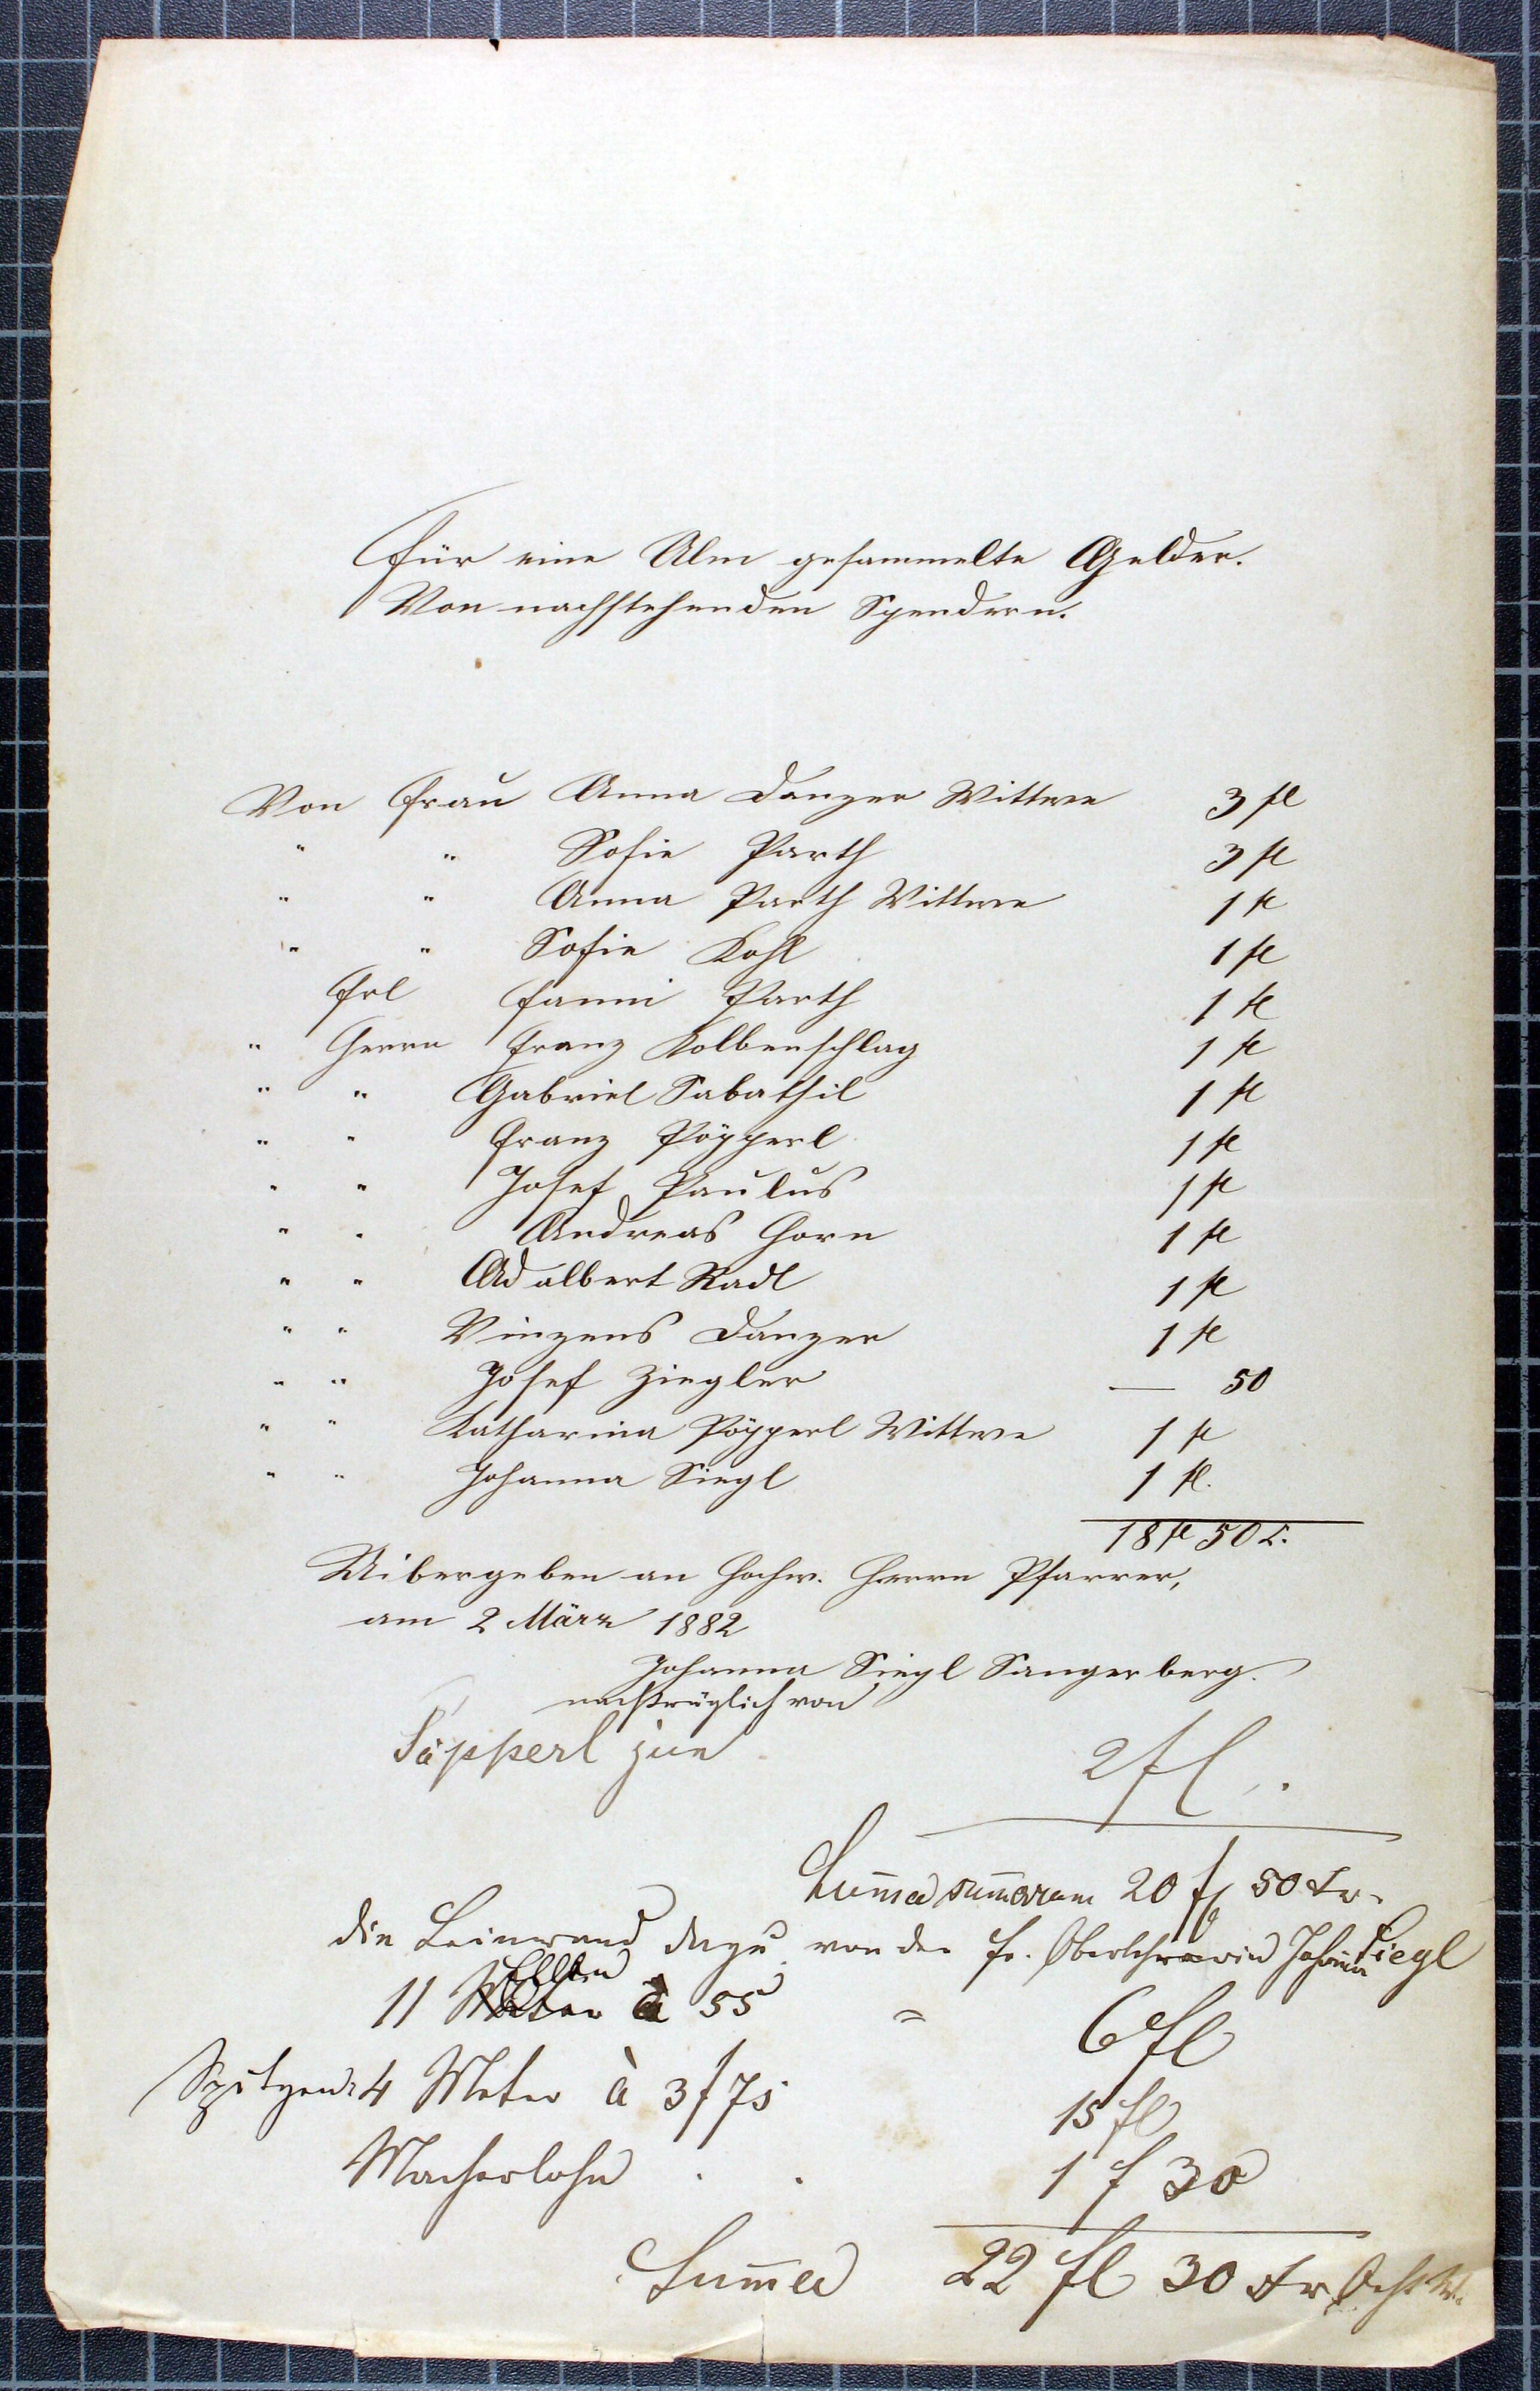 Für eine Alm gesammelte Gelder.
Von nachstehenden Spendern.
Von Frau Anna Danzer Wittwe 3 fl
" " Sofie Parth 3 fl
" " Anna Parth Wittwe 1 fl
" " Sofie Kohl 1 fl
Frl Fanni Parth 1 fl
" Herrn Franz Kolbenschlag 1 fl
" " Gabriel Sabathil 1 fl
" " Franz Pöpperl 1 fl
" " Josef Paulus 1 fl
" " Andreas Horn 1 fl
" " Adalbert Radl 1 fl
" " Vinzens Danzer 1 fl
" " Josef Ziegler — 50
" " Katharina Pöpperl Wittwe 1 fl
" " Johanna Siegl 1 fl.
18 fl 50 k.
Uibergeben an Hochw. Herrn Pfarrer,
am 2 März 1882
Johanna Siegl Sangerberg.
nachträglich von
Pöpperl jun 2 fl.
Sum̄a sum̄arum 20 fl 50 kr.
die Leinwand dazu von der Fr. Oberlehrerin Johanna Siegl
11 Ellen à 55 = 6 fl
Spitzen 4 Meter à 3 f 75 15 fl
Macherlohn . . 1 f 30
Sum̄a 22 fl 30 kr Öst W.